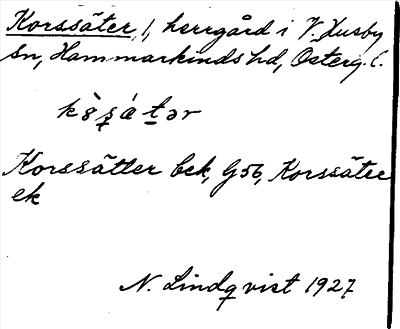 Korssäter, 1, herrgård i V. Husby
sn, Hammarkinds hd, Österg. l.
Korssätter bek, G56, Korssäter
ek
N. Lindqvist 1927